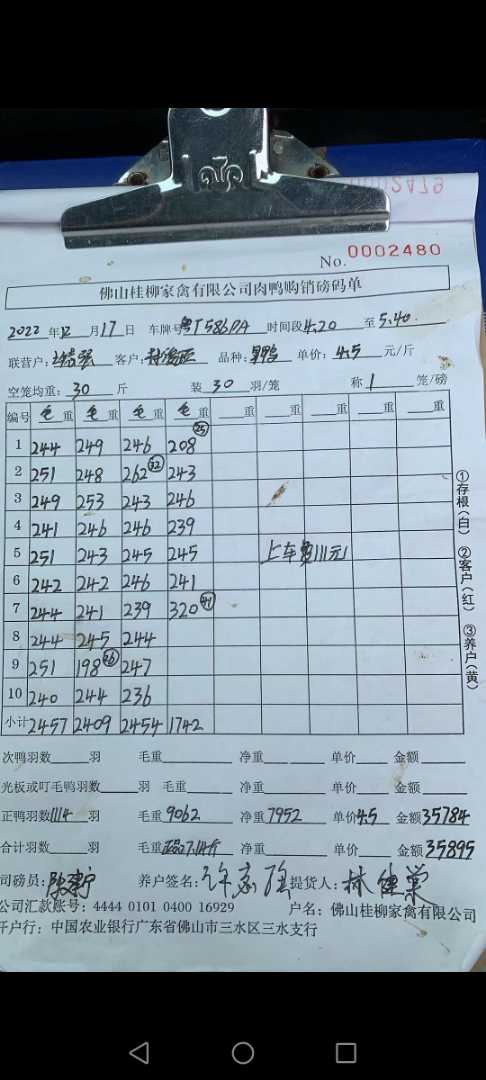 0002479
No. 0002480
佛山桂柳家禽有限公司肉鸭购销磅码单
2022年12月17日 车牌号粤T586DA 时间段4.20至5.40
联营户: 客户: 品种: 单价:4.5元/斤
空笼均重:30斤 装30羽/笼 称1笼/磅
编号 毛重 毛重 毛重 毛重 重 重 重 重 重
1 244 249 246 208 (25)
2 251 248 262 (32) 243
3 249 253 243 246
4 241 246 246 239
5 251 243 245 245 上车费111元
6 242 242 246 241
7 244 241 239 320 (41)
8 244 245 244
9 251 198 (26) 247
10 240 244 236
小计 2457 2409 2454 1742
次鸭羽数 羽 毛重 净重 单价 金额
光板或叮毛鸭羽数 羽 毛重 净重 单价 金额
正鸭羽数1114羽 毛重9062 净重7952 单价4.5 金额35784
合计羽数 羽 毛重 净重 单价 金额35895
司磅员: 养户签名: 提货人:
公司汇款账号:4444 0101 0400 16929 户名:佛山桂柳家禽有限公司
开户行:中国农业银行广东省佛山市三水区三水支行
①存根(白) ②客户(红) ③养户(黄)